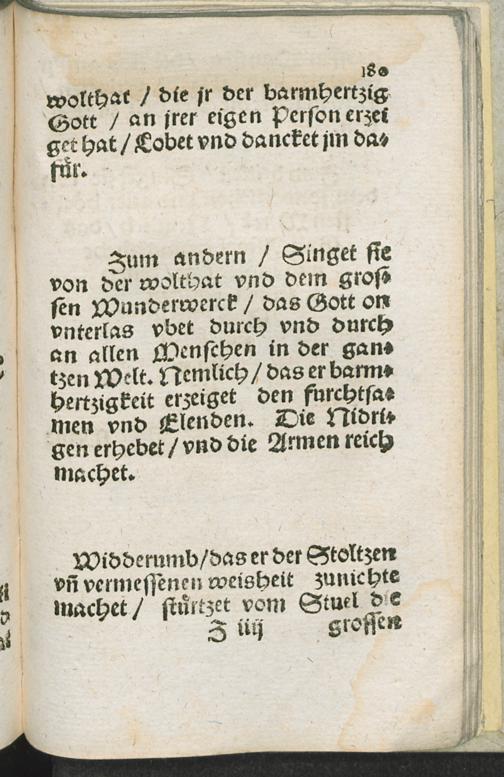 180
wolthat / die jr der barmhertzig
Gott / an jrer eigen Person erzei
get hat / Lobet vnd dancket jm da⸗
fuͤr.
Zum andern / Singet sie
von der wolthat vnd dem gros⸗
sen Wunderwerck / das Gott on
vnterlas vbet durch vnd durch
an allen Menschen in der gan⸗
tzen Welt. Nemlich / das er barm⸗
hertzigkeit erzeiget den furchtsa⸗
men vnd Elenden. Die Nidri⸗
gen erhebet / vnd die Armen reich
machet.
Widderumb / das er der Stoltzen
vn̄ vermessenen weisheit zunichte
machet / stuͤrtzet vom Stuel die
Z iiij grossen